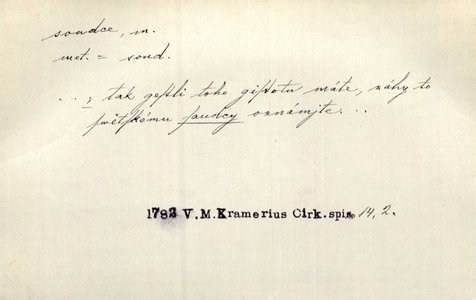 soudce, m.
met. = soud.
... ; tak gestli toho gistotu máte, záhy to
swětskému saudcy oznámjte...
1782 V.M.Kramerius Cirk.spis. 14, 2.